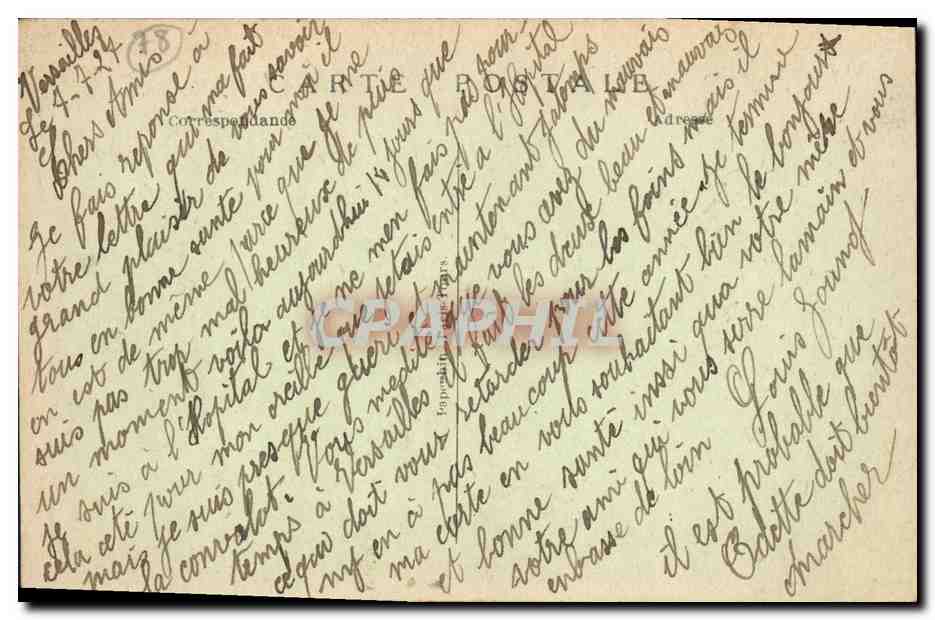 CARTE POSTALE
Correspondance
Adresse
78
Versailles
Le 7-7-27
Chers Amis
Je fais reponse à
votre lettre qui ma fait
grand plaisir de vous savoir
tous en bonne santé pour moi il
en est de même parce que je ne
suis pas trop mal heureux de puis
un moment voila aujourdhui 14 jours que
je suis à l'Hopital et donc men fais pas pour
cela ceté pour mon oreille que jetais entré a l'Hopital
mais je suis presque guerit et maintenant jatemps
la convalat. Vous medite que vous avez du mauvais
temps à Versailles il fait les deux beau et mauvais
cequi doit vous retarder pour les foins mais il
ny en à pas beaucoup cette année. Je termine
ma carte en vous souhaitant bien le bonjour
et bonne santé insi qua votre mère
votre ami qui vous serre lamain et vous
enbrasse de loin Louis
il est probable que
Odette doit bientôt
marcher
Papeghin, Paris-Tours.
CPAPHIL